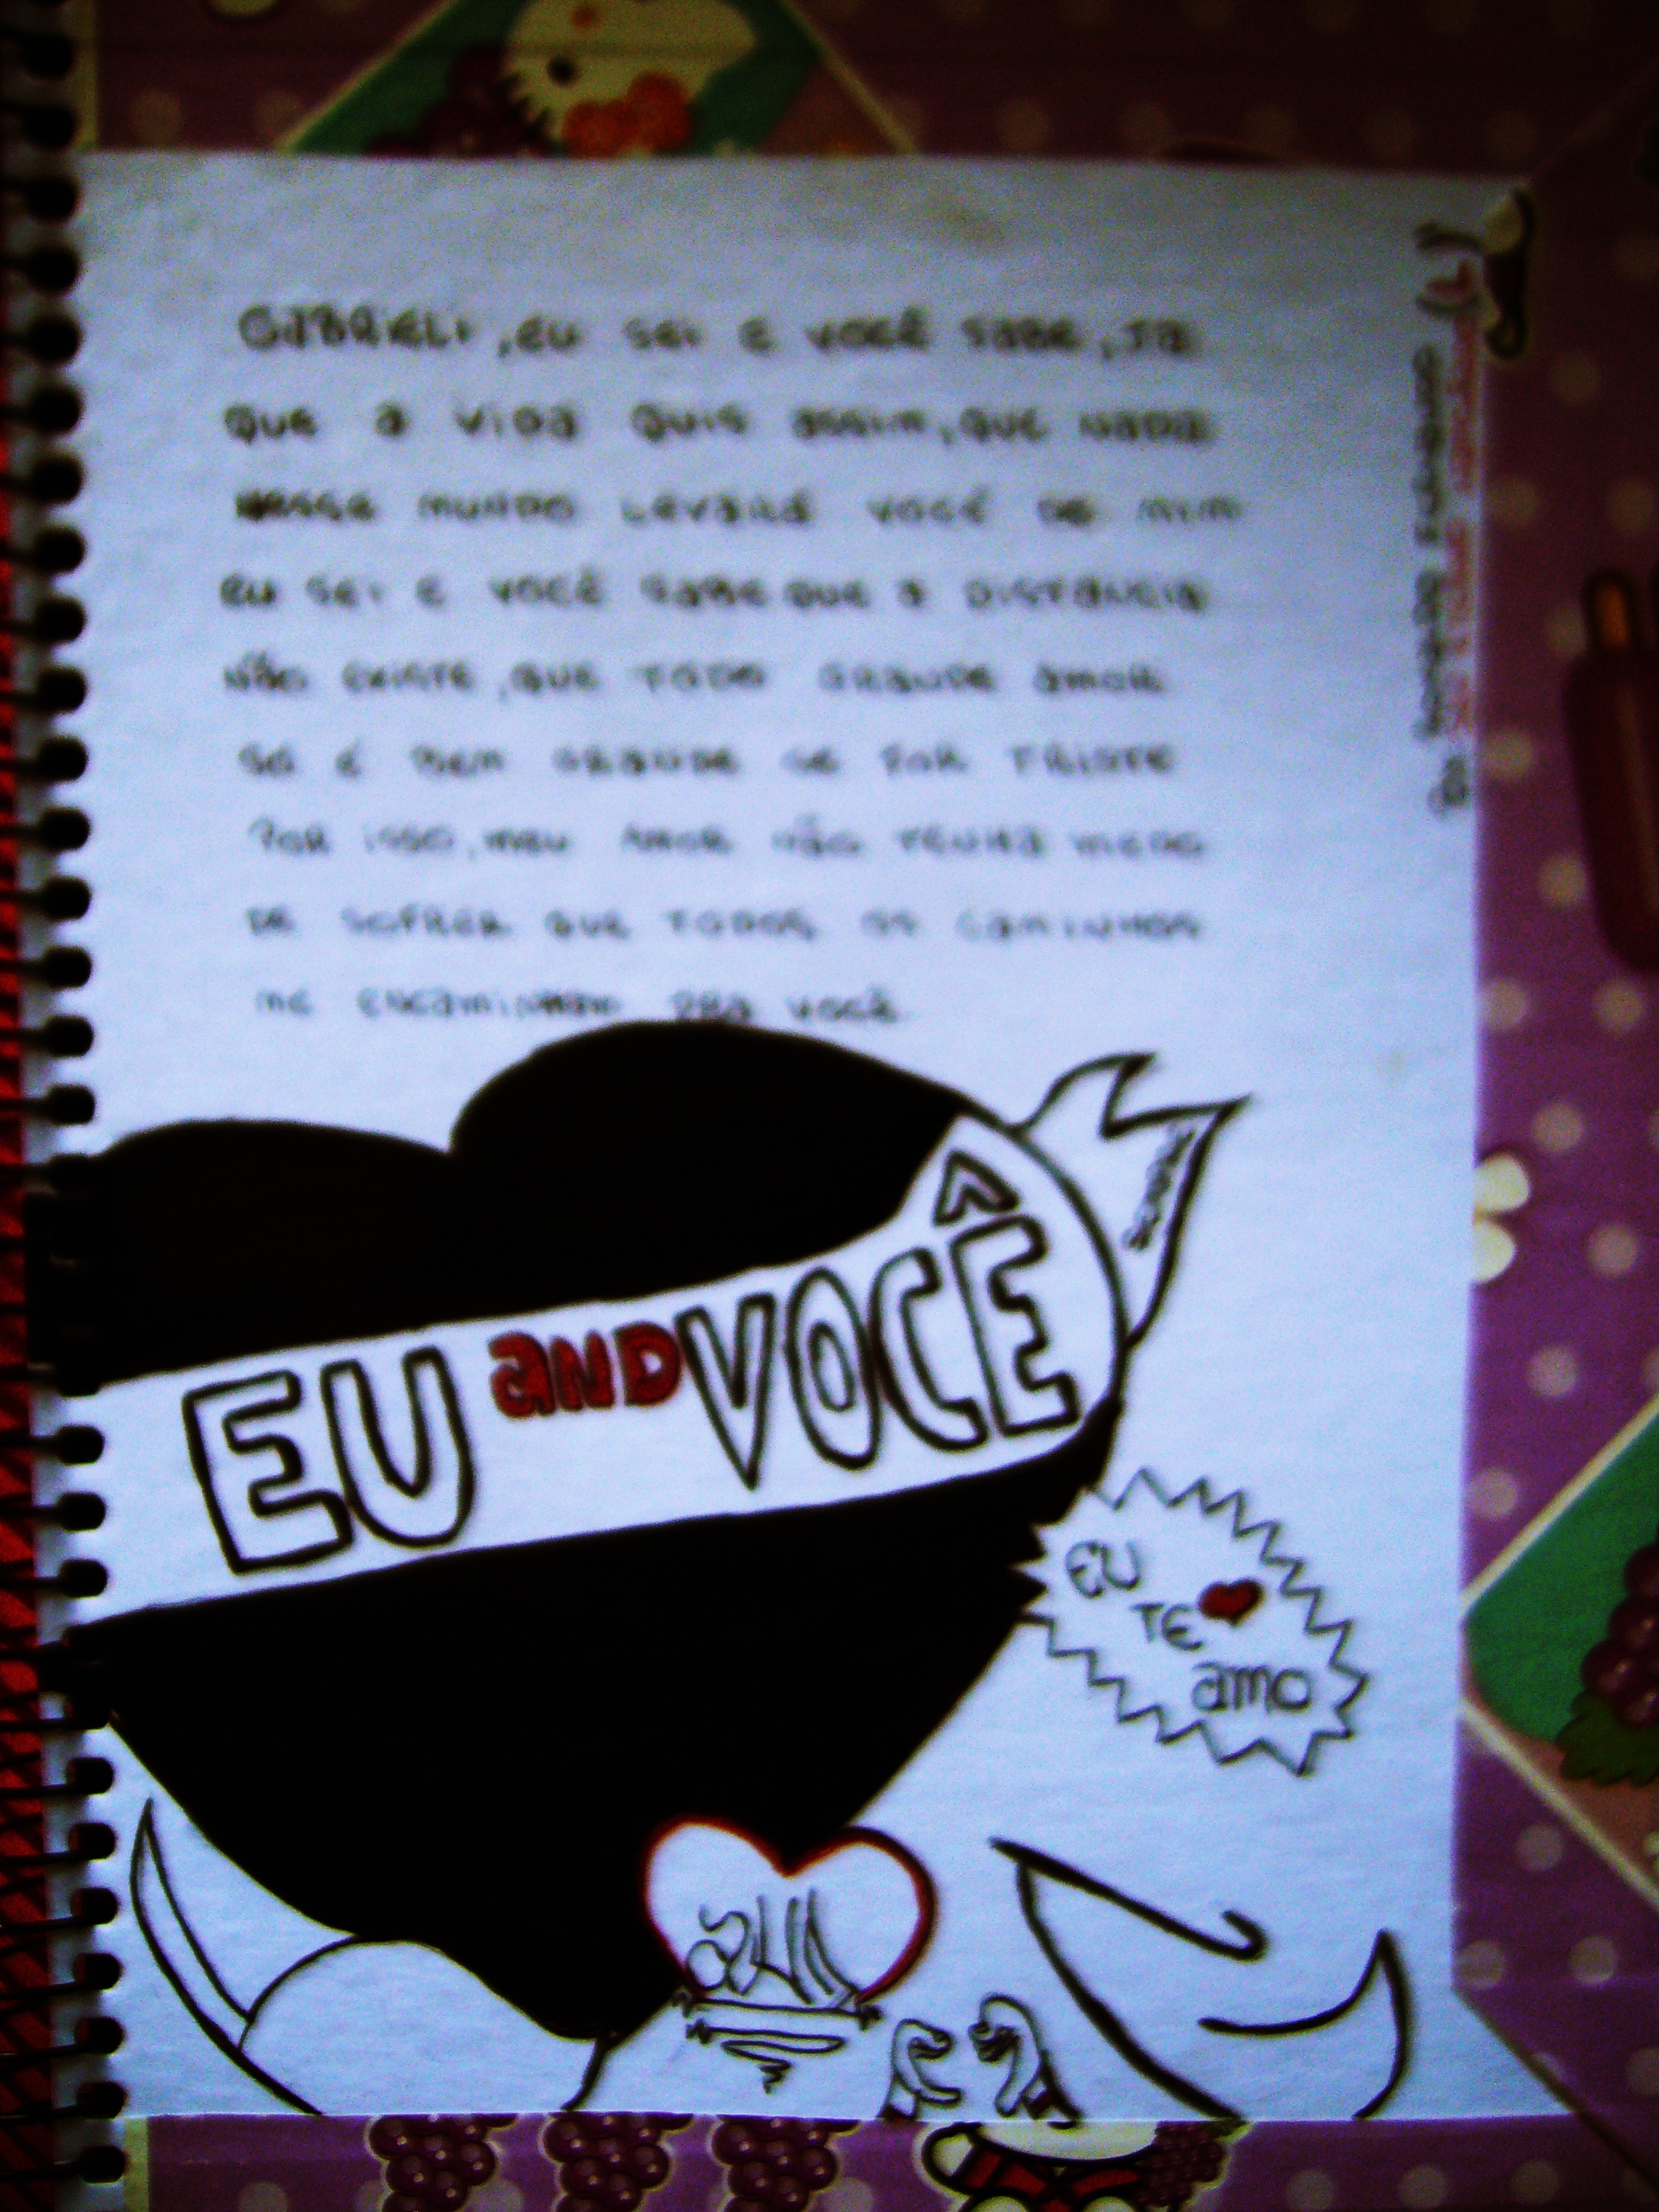 GABRIELI, EU SEI E VOCÊ SABE, JÁ
QUE A VIDA QUIS ASSIM, QUE NADA
NESSE MUNDO LEVARÁ VOCÊ DE MIM
EU SEI E VOCÊ SABE QUE A DISTÂNCIA
NÃO EXISTE, QUE TODO GRANDE AMOR
SÓ É BEM GRANDE SE FOR TRISTE
POR ISSO, MEU AMOR NÃO TENHA MEDO
DE SOFRER QUE TODOS OS CAMINHOS
ME ENCAMINHAM PRA VOCÊ
EU AND VOCÊ
EU
TE
AMO